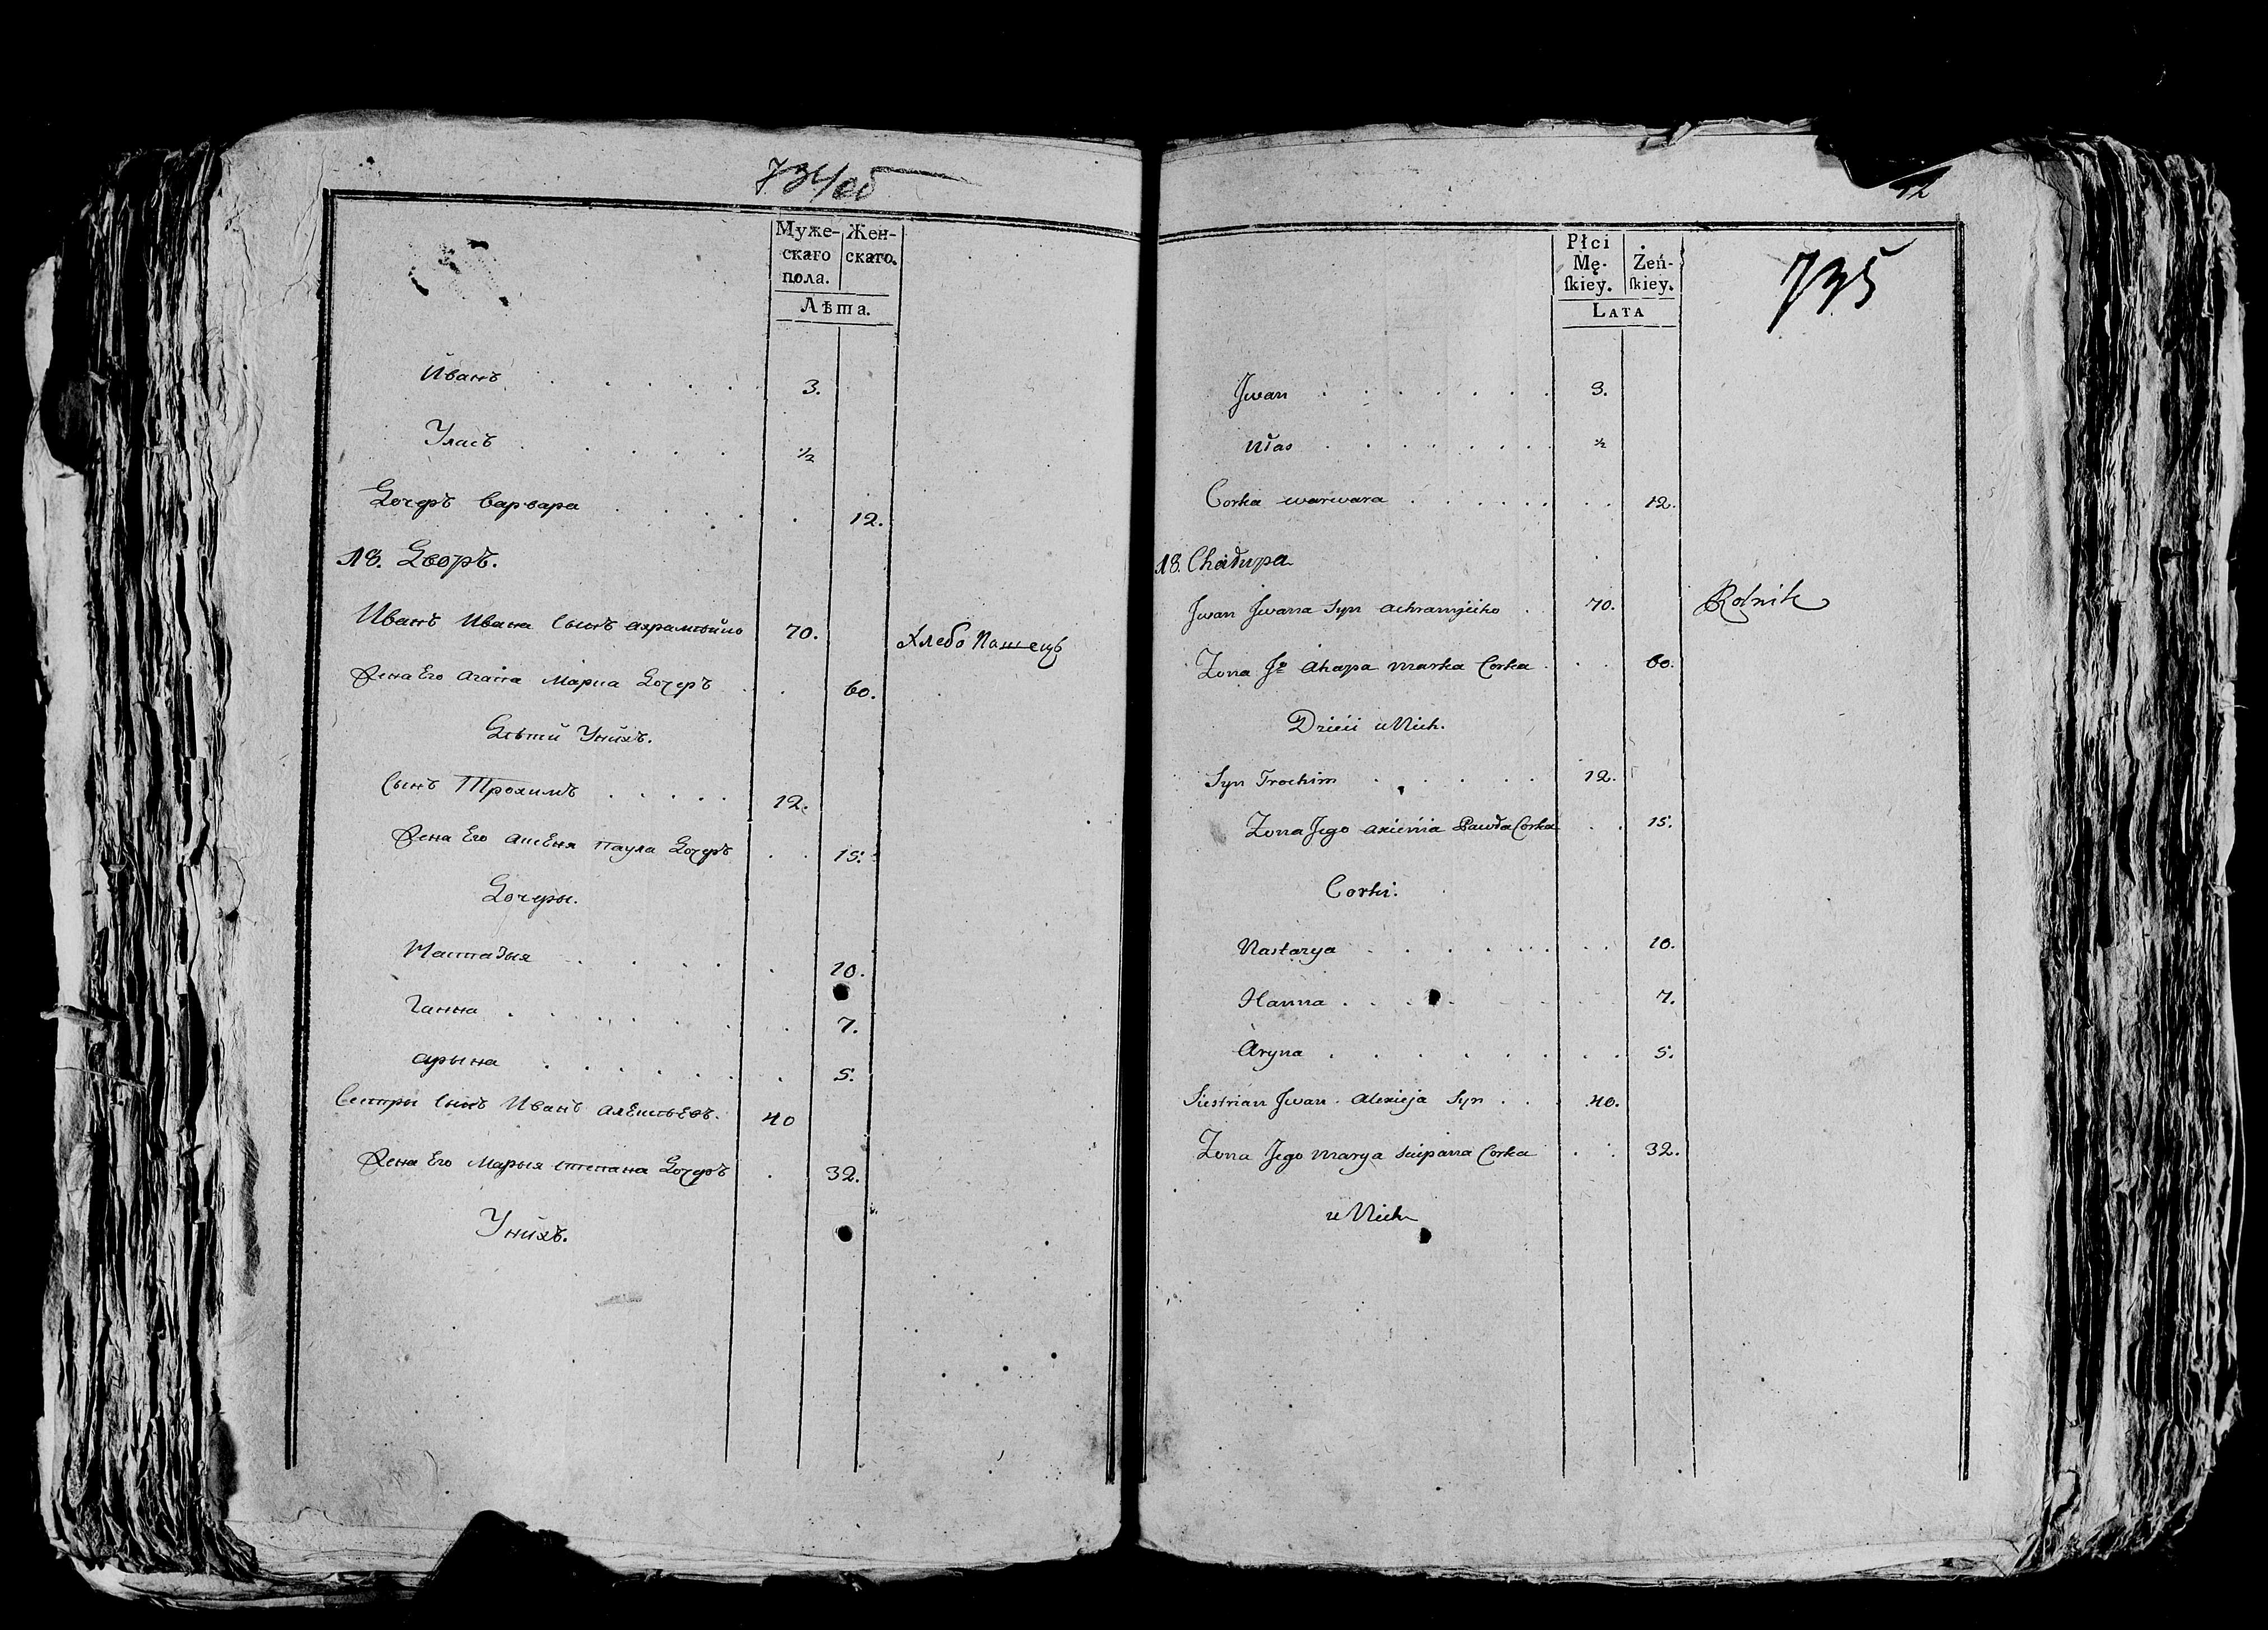 734об
Муже-
скаго
пола.
Жен-
скаго.
Лѣта.
Иванъ 3.
Уласъ ½
Дочеръ варвара 12.
18. Дворъ.
Иванъ Ивана сынъ 70. Хлебо Пашецъ
Жена Его агапа Дочеръ 60.
Дѣтй Унихъ.
Сынъ Трохимъ 12.
Жена Его Паула Дочеръ 15.
Дочеры.
10.
Ганна 7.
арына 5.
Сестры сынъ Иванъ 40
Жена Его Марыя степана Дочеръ 32.
Унихъ.
12
735
Płci
Mę-
ſkiey.
Żeń-
ſkiey.
LATA
Jwan 3.
Ułas ½
Corka warwara 12.
18. Chałupa
Jwan Jwana Syn 70. Rolnik
Zona Jº Ahapa marka Corka 60.
Dzieci u Nich.
Syn Trochim 12.
Zona Jego axienia Pawła Corka 15.
Corki.
Nastazya 10.
Hanna 7.
Aryna 5.
Siestrian Jwan Alexieja Syn 40.
Zona Jego marya Sciepana Corka 32.
u Nich